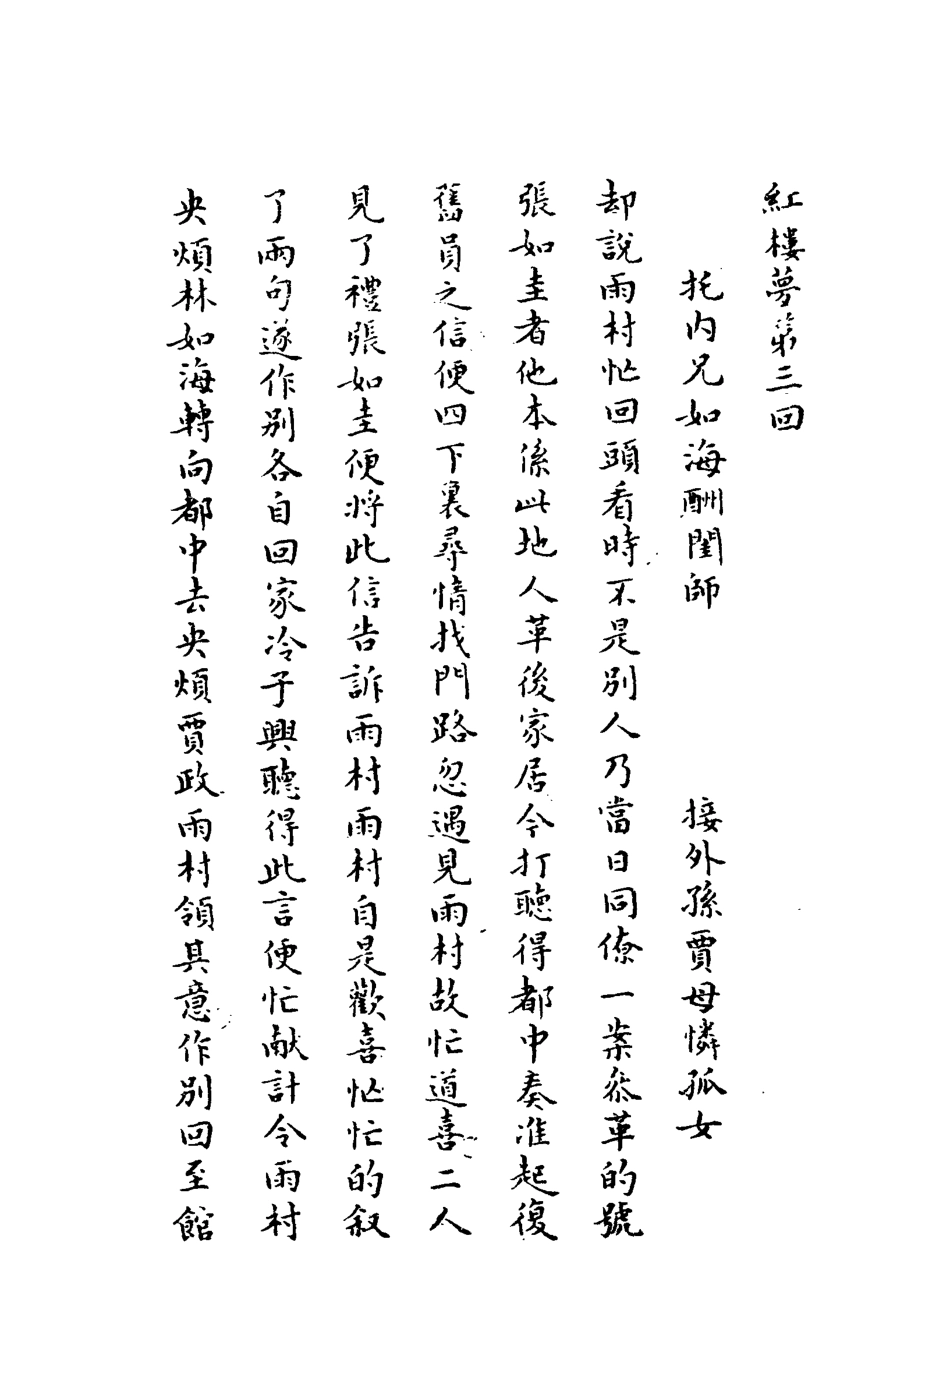 紅樓夢第三回
托內兄如海酬閨師　接外孫賈母憐孤女
却說雨村忙回頭看時不是別人乃當日同僚一案叅革的號
張如圭者他本係此地人革後家居今打聽得都中奏准起復
舊員之信便四下裏尋情找門路忽遇見雨村故忙道喜二人
見了禮張如圭便將此信告訴雨村雨村自是歡喜忙忙的叙
了兩句遂作別各自回家冷子興聽得此言便忙献計令雨村
央煩林如海轉向都中去央煩賈政雨村領其意作別回至館